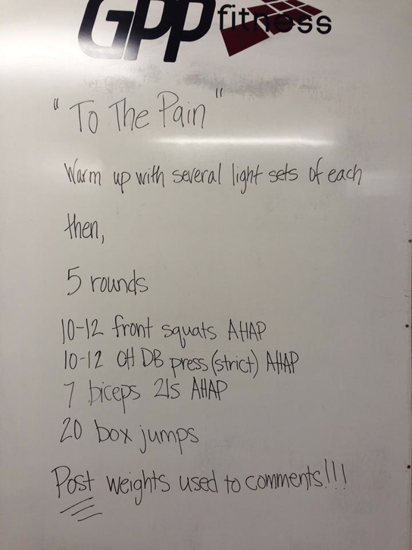 GPP fitness
"To The Pain"
Warm up with several light sets of each
then,
5 rounds
10-12 front squats AHAP
10-12 OH DB press (strict) AHAP
7 biceps 21s AHAP
20 box jumps
Post weights used to comments!!!